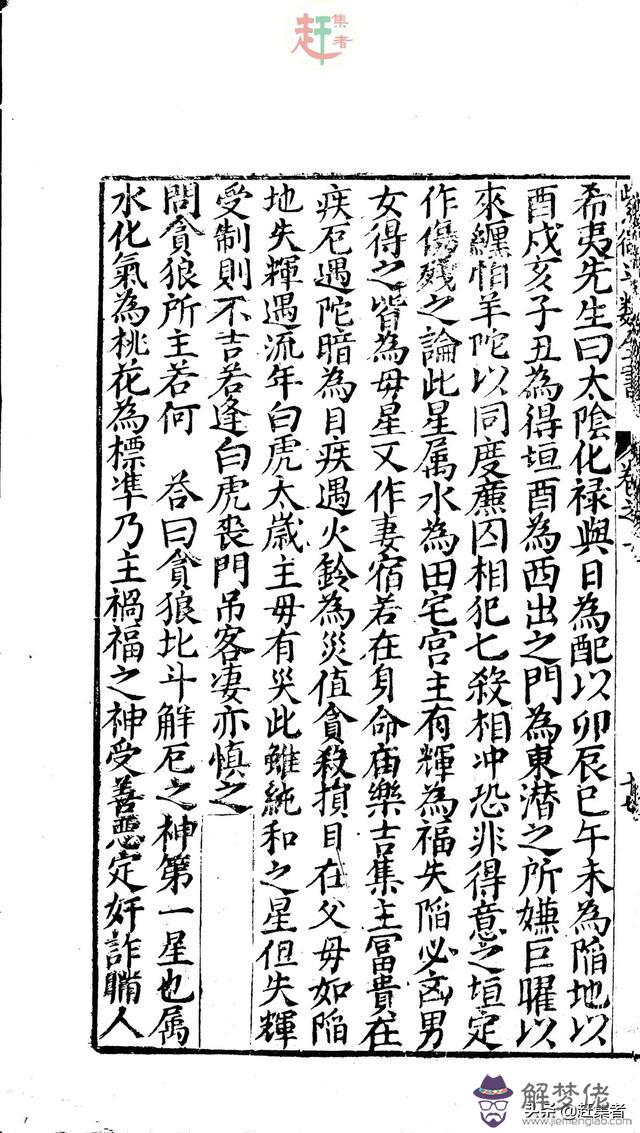 赶集者
希夷先生曰太陰化禄與日為配以卯辰巳午未為陷地以
酉戌亥子丑為得垣酉為西出之門為東潜之所嫌巨曜以
來纏怕羊陀以同度㢘囚相犯七殺相冲恐非得意之垣定
作傷殘之論此星属水為田宅宫主有輝為福失陷必㐫男
女得之皆為毋星又作妻宿若在身命庙樂吉集主富貴在
疾厄遇陀暗為目疾遇火鈴為災值貪殺損目在父毋如陷
地失輝遇流年白虎太歲主毋有災此雖純和之星但失輝
受制則不吉若逢白虎喪門吊客凄亦慎之
問貪狼所主若何 荅曰貪狼北斗解厄之神第一星也属
水化氣為桃花為標準乃主禍福之神受善惡定奸詐瞞人
解梦佬
头条@赶集者
www.jiemenglao.com